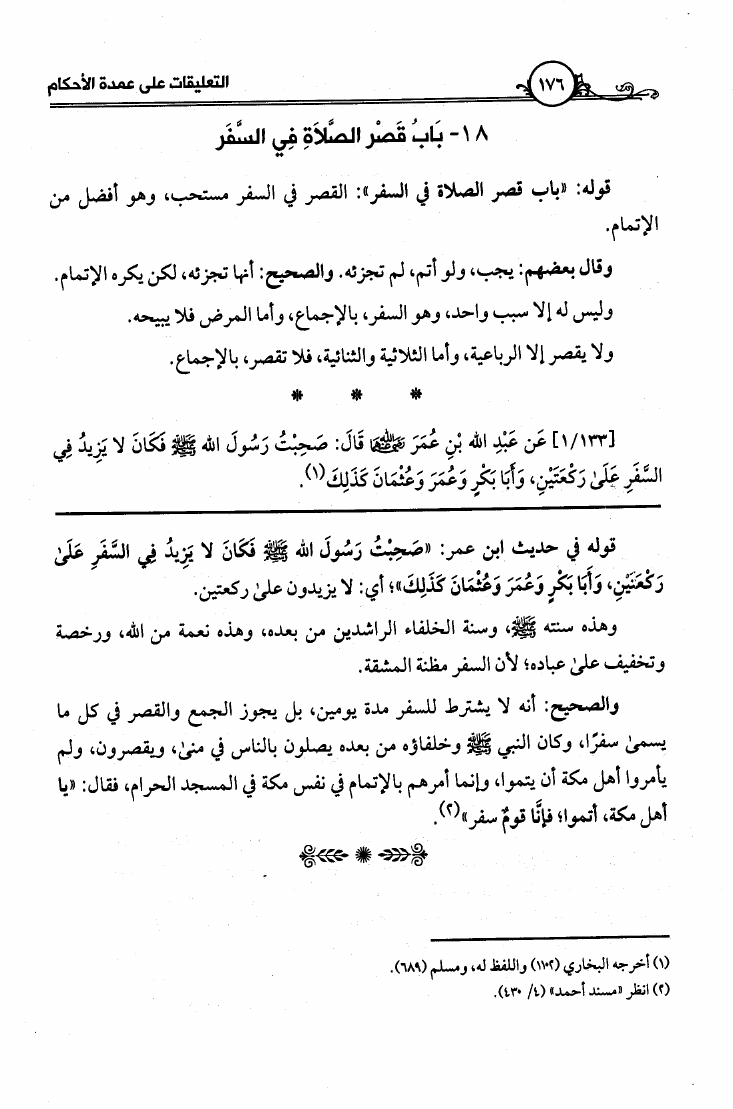 ١٧٦
التعليقات على عمدة الأحكام
١٨- بَابُ قَصْرِ الصَّلَاةِ فِي السَّفَرِ
قوله: «باب قصر الصلاة في السفر»: القصر في السفر مستحب، وهو أفضل من
الإتمام.
وقال بعضهم: يجب، ولو أتم، لم تجزئه. والصحيح: أنها تجزئه، لكن يكره الإتمام.
وليس له إلا سبب واحد، وهو السفر، بالإجماع، وأما المرض فلا يبيحه.
ولا يقصر إلا الرباعية، وأما الثلاثية والثنائية، فلا تقصر، بالإجماع.
* * *
[١/١٣٣] عَن عَبْدِ الله بْنِ عُمَرَ رضي الله عنهما قَالَ: صَحِبْتُ رَسُولَ الله ﷺ فَكَانَ لا يَزِيدُ فِي
السَّفَرِ عَلَىٰ رَكْعَتَيْنِ، وَأَبَا بَكْرٍ وَعُمَرَ وَعُثْمَانَ كَذَلِكَ(١).
قوله في حديث ابن عمر: «صَحِبْتُ رَسُولَ الله ﷺ فَكَانَ لا يَزِيدُ فِي السَّفَرِ عَلَىٰ
رَكْعَتَيْنِ، وَأَبَا بَكْرٍ وَعُمَرَ وَعُثْمَانَ كَذَلِكَ»؛ أي: لا يزيدون علىٰ ركعتين.
وهذه سنته ﷺ، وسنة الخلفاء الراشدين من بعده، وهذه نعمة من الله، ورخصة
وتخفيف علىٰ عباده؛ لأن السفر مظنة المشقة.
والصحيح: أنه لا يشترط للسفر مدة يومين، بل يجوز الجمع والقصر في كل ما
يسمىٰ سفرًا، وكان النبي ﷺ وخلفاؤه من بعده يصلون بالناس في منىٰ، ويقصرون، ولم
يأمروا أهل مكة أن يتموا، وإنما أمرهم بالإتمام في نفس مكة في المسجد الحرام، فقال: «يا
أهل مكة، أتموا؛ فإنَّا قومٌ سفر»(٢).
(١) أخرجه البخاري (١١٠٢) واللفظ له، ومسلم (٦٨٩).
(٢) انظر «مسند أحمد» (٤/ ٤٣٠).